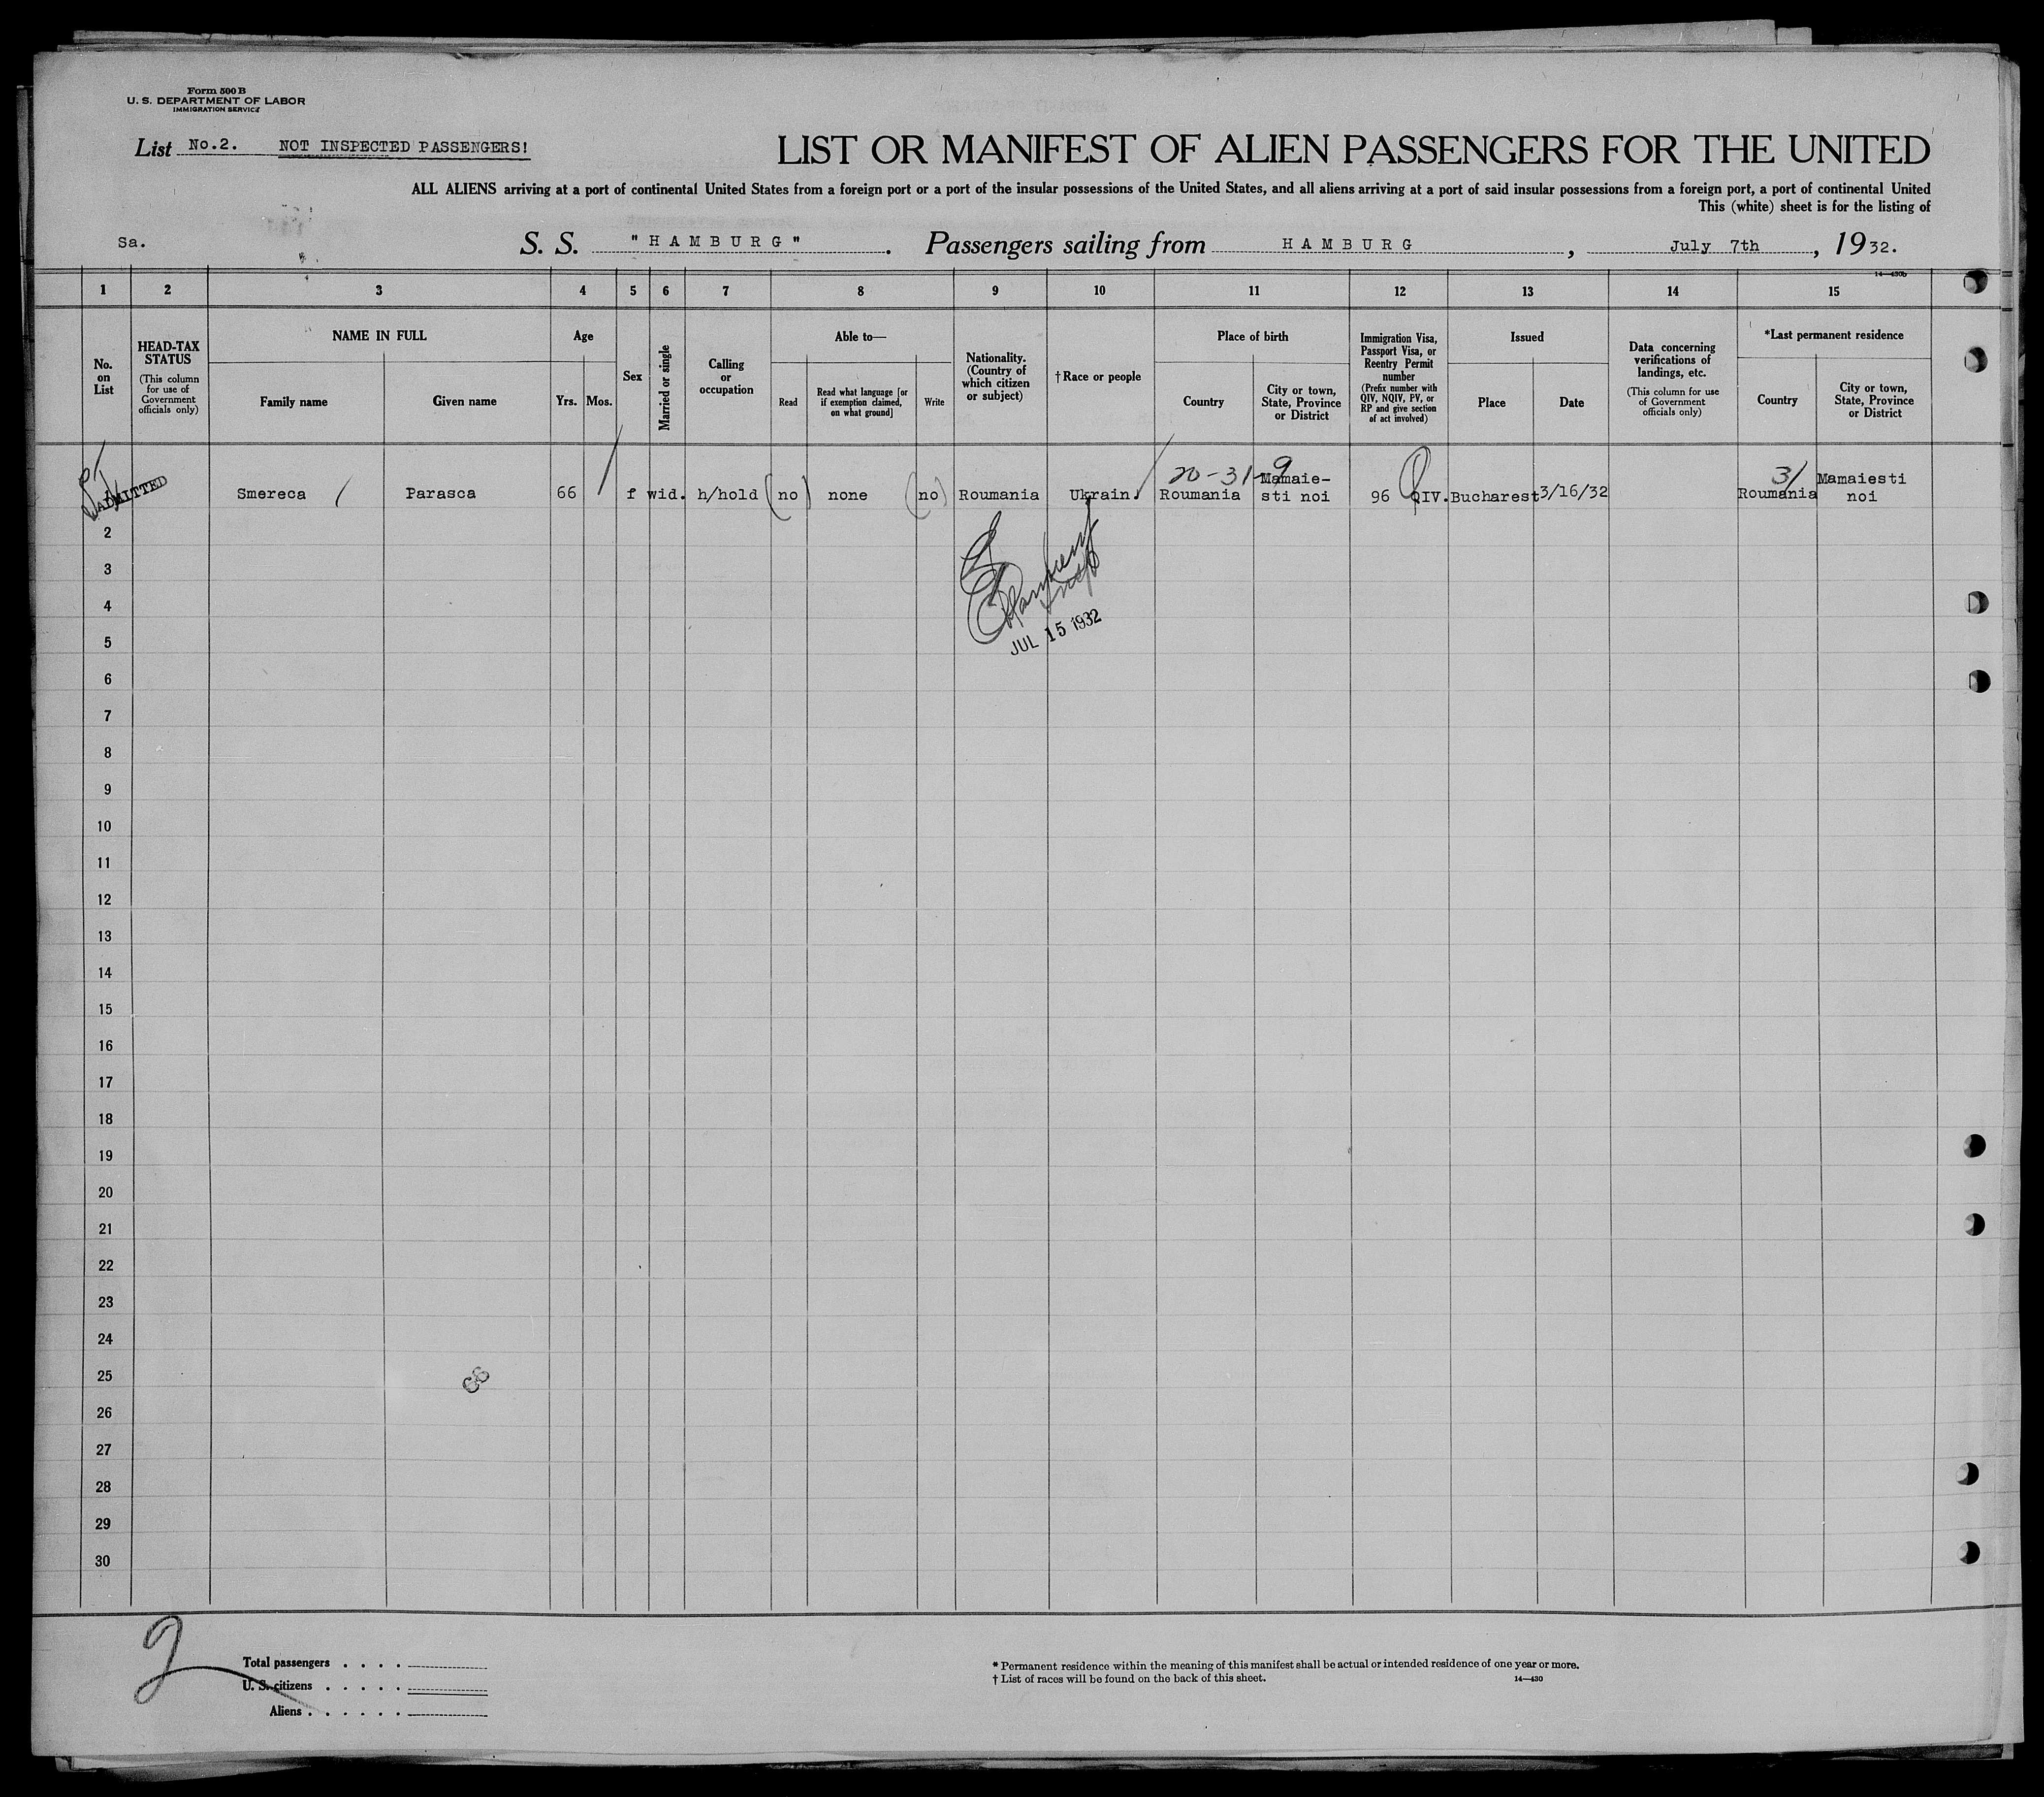 Form 500 B
U. S. DEPARTMENT OF LABOR
IMMIGRATION SERVICE
List No.2. NOT INSPECTED PASSENGERS!
LIST OR MANIFEST OF ALIEN PASSENGERS FOR THE UNITED
ALL ALIENS arriving at a port of continental United States from a foreign port or a port of the insular possessions of the United States, and all aliens arriving at a port of said insular possessions from a foreign port, a port of continental United
This (white) sheet is for the listing of
Sa. S. S. "HAMBURG". Passengers sailing from HAMBURG, July 7th, 1932.
14—430b
1 2 3 4 5 6 7 8 9 10 11 12 13 14 15
No. on List
HEAD-TAX STATUS
(This column for use of Government officials only)
NAME IN FULL
Family name
Given name
Age
Yrs. Mos.
Sex
Married or single
Calling or occupation
Able to—
Read
Read what language [or if exemption claimed, on what ground]
Write
Nationality. (Country of which citizen or subject)
†Race or people
Place of birth
Country
City or town, State, Province or District
Immigration Visa, Passport Visa, or Reentry Permit number
(Prefix number with QIV, NQIV, PV, or RP and give section of act involved)
Issued
Place
Date
Data concerning verifications of landings, etc.
(This column for use of Government officials only)
*Last permanent residence
Country
City or town, State, Province or District
20-31-9
3/
ADMITTED Smereca Parasca 66 f wid. h/hold (no) none (no) Roumania Ukrain. Roumania Mamaie-
sti noi 96 QIV. Bucharest 3/16/32 Roumania Mamaiesti
noi
2
3
4
JUL 15 1932
5
6
7
8
9
10
11
12
13
14
15
16
17
18
19
20
21
22
23
24
25
26
27
28
29
30
2
Total passengers . . . .
U. S. citizens . . . . .
Aliens . . . . . .
* Permanent residence within the meaning of this manifest shall be actual or intended residence of one year or more.
† List of races will be found on the back of this sheet.
14—430